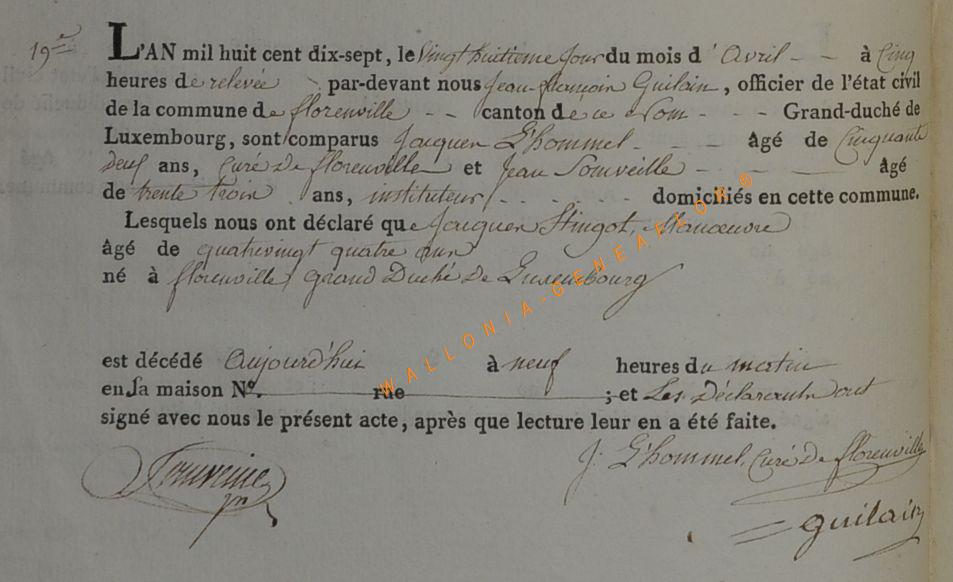 19e L'AN mil huit cent dix-sept, le Vingt huitieme Jour du mois d'Avril - - à Cinq
heures de relevée par-devant nous Jean françois Guilain, officier de l'état civil
de la commune de florenville - - canton de - - Grand-duché de
Luxembourg, sont comparus Jacques L'hommel - - - âgé de Cinquante
deux ans, Curé De florenville et Jean Souveille - - - - âgé
de trente trois ans, instituteur - - - - domiciliés en cette commune.
Lesquels nous ont déclaré que Jacques Stingot, Manœuvre
âgé de quatrevingt quatre ans
né à florenville Grand Duché de Luxembourg
est décédé Aujourd'hui à neuf heures du matin
en Sa maison No. rue ; et Les Déclarants ont
signé avec nous le présent acte, après que lecture leur en a été faite.
J. L'hommel, Curé De florenville
guilain
WALLONIA-GENEALOR®